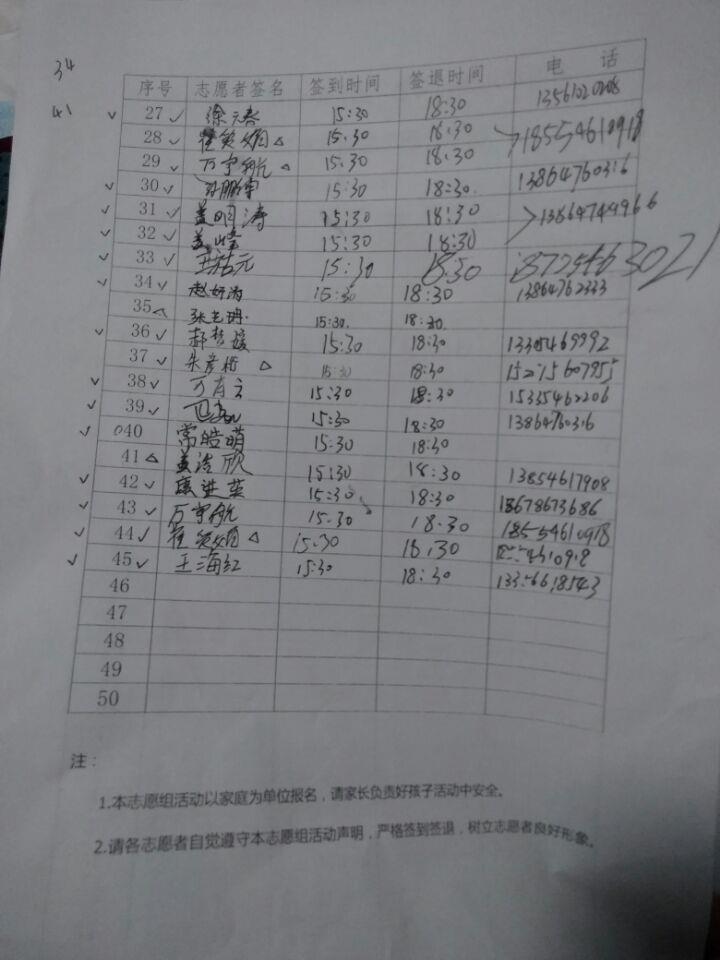 34
41
序号 志愿者签名 签到时间 签退时间 电 话
27 徐元春 15:30 18:30
28 15:30 18:30 18554610918
29 万宇航 15:30 18:30
30 15:30 18:30 13864760316
31 盖明涛 15:30 18:30 13864744966
32 盖 15:30 18:30
33 王 元 15:30 18:30 18725463021
34 赵妍 15:30 18:30 13864762333
35 张 15:30 18:30
36 郝 媛 15:30 18:30 13305469992
37 朱彦 15:30 18:30
38 万有 15:30 18:30 15335462206
39 15:30 18:30 13864760316
40 常皓萌 15:30 18:30
41 盖浩欣 15:30 18:30 13854617908
42 进英 15:30 18:30 18678673686
43 万宇航 15:30 18:30 18554610918
44 15:30 18:30
45 王海红 15:30 18:30
46
47
48
49
50
注：
1.本志愿组活动以家庭为单位报名，请家长负责好孩子活动中安全。
2.请各志愿者自觉遵守本志愿组活动声明，严格签到签退，树立志愿者良好形象。